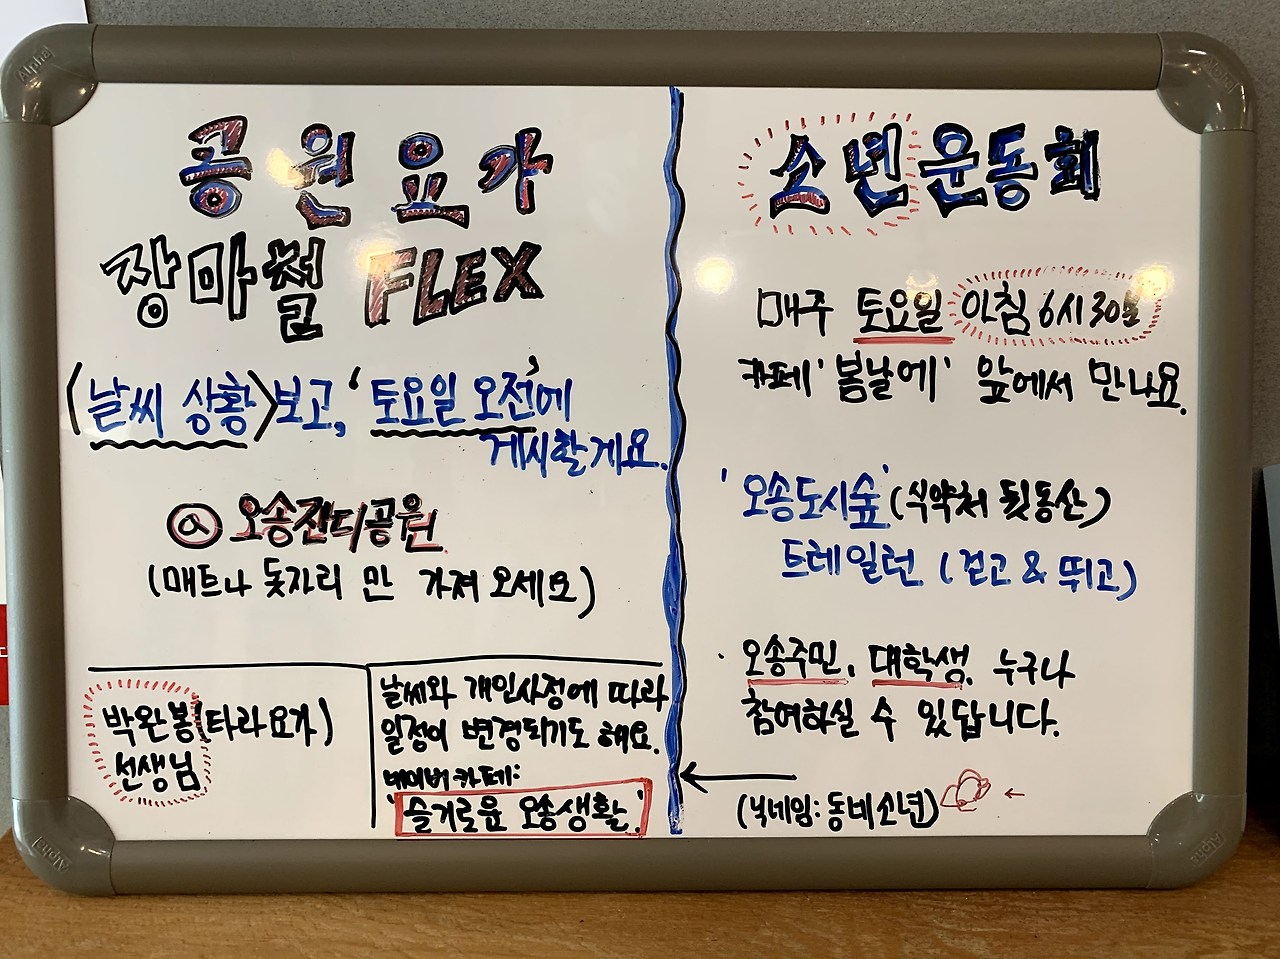 공원요가
장마철 FLEX
<날씨 상황>보고, '토요일 오전'에
게시할게요.
@ 오송잔디공원
(매트나 돗자리 만 가져 오세요)
박완봉(타라요가)
선생님
날씨와 개인사정에 따라
일정이 변경되기도 해요.
네이버 카페:
'슬기로운 오송생활'
소년운동회
매주 토요일 아침 6시 30분
카페 '봄날에' 앞에서 만나요.
'오송도시숲'(식약처 뒷동산)
트레일런 (걷고 & 뛰고)
오송주민, 대학생, 누구나
참여하실 수 있답니다.
(닉네임: 동비소년)
Alpha
Alpha
Alpha